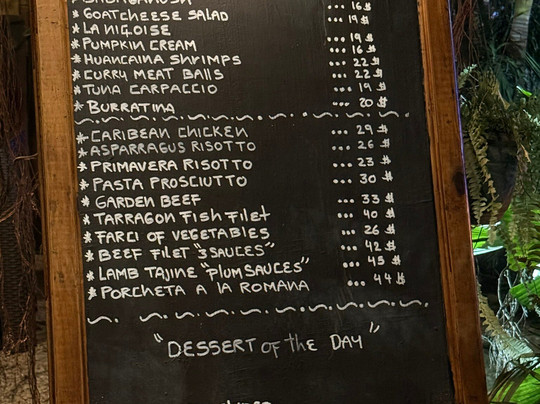 * GOATCHEESE SALAD ... 19 $
* LA NIÇOISE
* PUMPKIN CREAM ... 16 $
* HUANCAINA SHRIMPS ... 22 $
* CURRY MEAT BALLS ... 22 $
* TUNA CARPACCIO ... 19 $
* BURRATINA ... 20 $
* CARIBEAN CHICKEN ... 29 $
* ASPARRAGUS RISOTTO ... 26 $
* PRIMAVERA RISOTTO ... 23 $
* PASTA PROSCIUTTO ... 30 $
* GARDEN BEEF ... 33 $
* TARRAGON FISH FILET ... 40 $
* FARCI OF VEGETABLES ... 26 $
* BEEF FILET "3 SAUCES" ... 42 $
* LAMB TAJINE "PLUM SAUCES" ... 45 $
* PORCHETA A LA ROMANA ... 44 $
"DESSERT OF THE DAY"